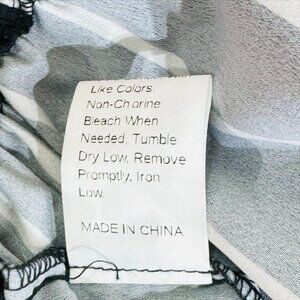 Like Colors,
Non-Chlorine
Bleach When
Needed, Tumble
Dry Low, Remove
Promptly, Iron
Low.
MADE IN CHINA